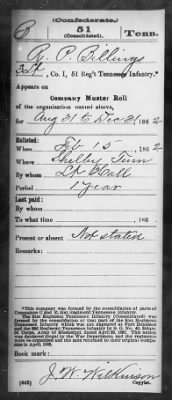 (Confederate.)
B 51 Tenn.
(Consolidated).
R. P. Billings
, Co. I, 51 Reg't Tennessee Infantry.*
Appears on
Company Muster Roll
of the organization named above,
for Aug 31 to Dec 31, 1862
Enlisted:
When Feb 15, 1862
Where Shelby Tenn
By whom Lt Hall
Period 1 year
Last paid:
By whom
To what time , 186
Present or absent Not stated
Remarks:
*This company was formed by the consolidation of part of
Book mark:
J. W. Wilkinson
(642) Copyist.